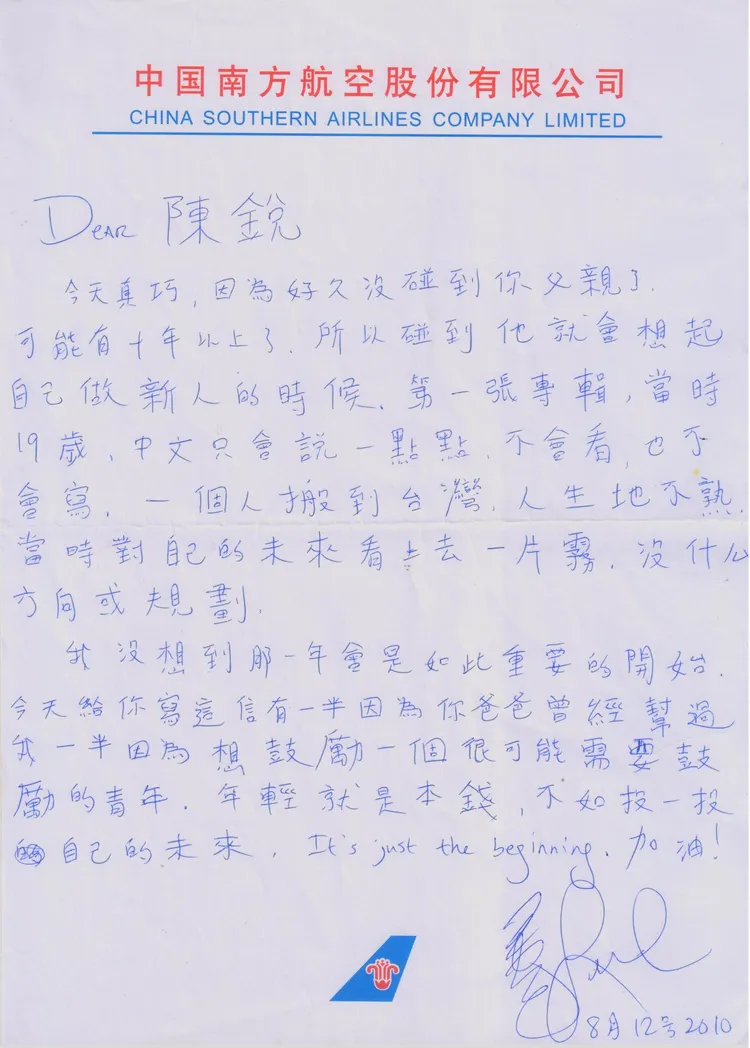 中国南方航空股份有限公司
CHINA SOUTHERN AIRLINES COMPANY LIMITED
Dear 陳銳
今天真巧,因為好久没碰到你父親了.
可能有十年以上了.所以碰到他就會想起
自己做新人的時候.第一張專輯,當時
19歲,中文只會説一點點.不會看,也不
會寫.一個人搬到台灣.人生地不熟.
當時對自己的未來看上去一片霧.没什么
方向或規劃.
我没想到那一年會是如此重要的開始.
今天給你寫這信有一半因為你爸爸曾經幫過
我一半因為想鼓勵一個很可能需要鼓
勵的青年.年輕就是本錢,不如投一投
自己的未來.It's just the beginning.加油!
8月12号2010